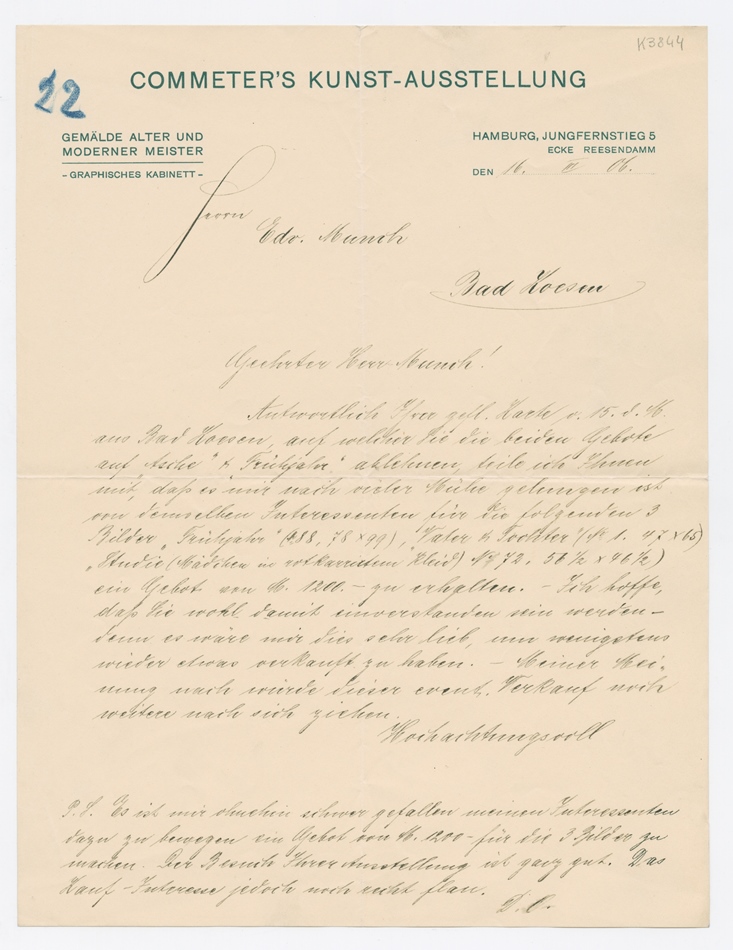 K3844
22
COMMETER'S KUNST-AUSSTELLUNG
GEMÄLDE ALTER UND
MODERNER MEISTER
- GRAPHISCHES KABINETT -
HAMBURG, JUNGFERNSTIEG 5
ECKE REESENDAMM
DEN 16. II 06.
Herrn
Edv. Munch
Bad Koesen
Geehrter Herr Munch!
Antwortlich Ihrer gefl. Karte v. 15. d. M.
aus Bad Koesen, auf welcher Sie die beiden Gebote
auf „Asche" & „Frühjahr" ablehnen, teile ich Ihnen
mit, daß es mir nach vieler Mühe gelungen ist
von demselben Interessenten für die folgenden 3
Bilder „Frühjahr" (288, 78 x 99), „Vater & Tochter" (N. 1. 47 x 65)
„Studie (Mädchen in rotkarriertem Kleid) N 72, 56 ½ x 46 ½)
ein Gebot von M. 1200.- zu erhalten. - Ich hoffe,
daß Sie wohl damit einverstanden sein werden -
denn es wäre mir dies sehr lieb, um wenigstens
wieder etwas verkauft zu haben. - Meiner Mei-
nung nach würde dieser event. Verkauf noch
weitere nach sich ziehen.
Hochachtungsvoll
P. S. Es ist mir ohnehin schwer gefallen meinen Interessenten
dazu zu bewegen ein Gebot von M. 1200- für die 3 Bilder zu
machen. Der Besuch Ihrer Ausstellung ist ganz gut. Das
Kauf-Interesse jedoch noch recht flau.
D. O.